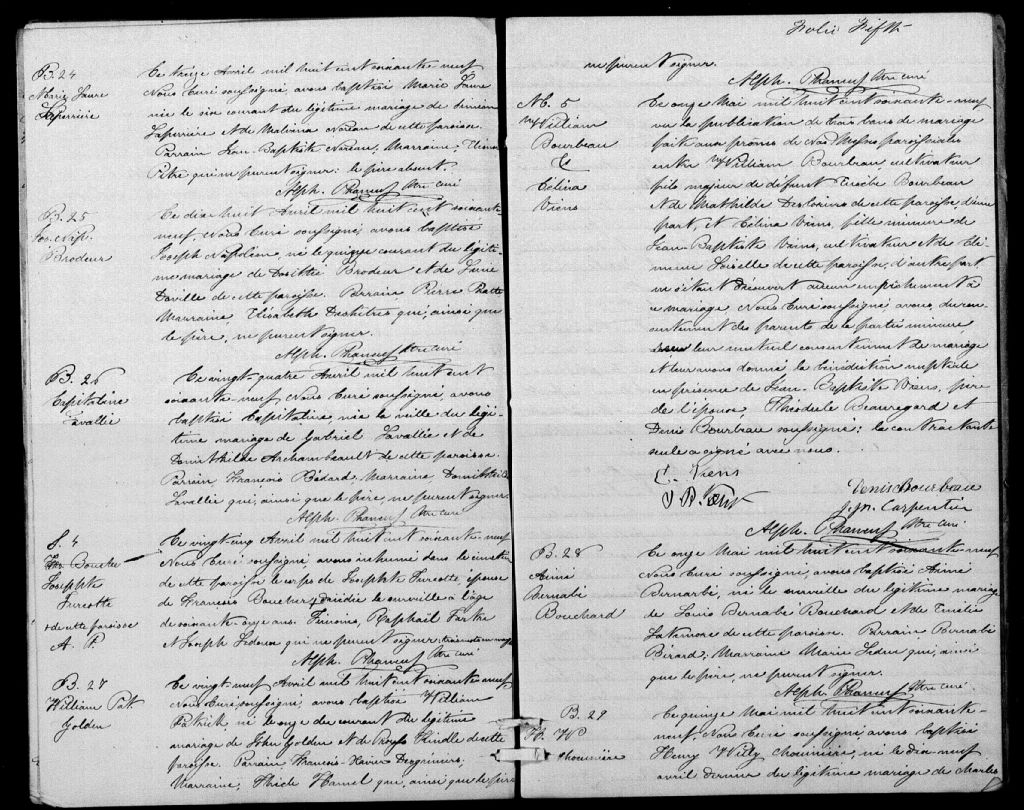 B. 24
Marie Laure
Laperrière
Ce treize Avril mil huit cent soixante neuf
Nous Curé soussigné, avons baptisé Marie Laure
née le six courant du légitime mariage de Siméon
Laperrière et de Malvina Noreau de cette paroisse.
Parrain Jean-Baptiste Noreau, Marraine,
qui ne purent signer: le père absent.
Alph. Phaneuf Ptre curé
B. 25
Jos. Nap.
Brodeur
Ce dix huit Avril mil huit cent soixante-
neuf, Nous Curé soussigné, avons baptisé
Joseph Napoléon, né le quinze courant du légiti-
me mariage de Dosithé Brodeur et de
de cette paroisse. Parrain Pierre
Marraine, Elisabeth qui, ainsi que
le père, ne purent signer.
Alph. Phaneuf Ptre curé
B. 26
Capitaline
Lavallée
Ce vingt-quatre Avril mil huit cent
soixante-neuf, Nous Curé soussigné, avons
baptisé Capitaline née la veille du légi-
time mariage de Gabriel Lavallée et de
Domithilde Archambeault de cette paroisse.
Parrain François Bédard, Marraine Domithilde
Lavallée qui, ainsi que le père, ne purent signer.
Alph. Phaneuf Ptre curé
S. 4
Boucher
Josephte
Turcotte
de cette paroisse
A. P.
Ce vingt-cinq Avril mil huit cent soixante-neuf
Nous Curé soussigné, avons inhumé dans le cimetière
de cette paroisse le corps de Josephte Turcotte, épouse
de François Boucher, décédée la surveille à l'âge
de soixante onze ans. Témoins, Raphaël
et Joseph Ledoux qui ne purent signer:
Alph. Phaneuf Ptre curé
B. 27
William Pat.
Golden
Ce vingt-neuf Avril mil huit cent soixante-neuf
Nous Curé soussigné, avons baptisé William
Patrick né le onze du courant du légitime
mariage de John Golden et de Hindle de cette
paroisse. Parrain François-Xavier
Marraine, Hamel qui, ainsi que le père
Folio Fifth
ne purent signer.
Alph. Phaneuf Ptre curé
M. 5
William
Bourbeau
&
Célina
Viens
Ce onze Mai mil huit cent soixante-neuf
vu la publication de trois bans de mariage
fait aux prônes de Nos Messes paroissiales
entre William Bourbeau cultivateur
fils majeur de défunt Eusèbe Bourbeau
et de Mathilde de cette paroisse, d'une
part, et Célina Viens, fille mineure de
Jean Baptiste Viens, cultivateur et de Clé-
mence Loiselle de cette paroisse, d'autre part
ne s'étant découvert aucun empêchement à
ce mariage, Nous Curé soussigné, avons, du con-
sentement des parents de la partie mineure
leur mutuel consentement de mariage
et leur avons donné la bénédiction nuptiale
en présence de Jean-Baptiste Viens, père
de l'épouse, Théodule Beauregard et
Denis Bourbeau soussigné: la contractante
seule a signé avec nous.
C. Viens
J B Viens
Denis Bourbeau
J. M. Carpentier
Alph. Phaneuf Ptre curé
B. 28
Aimé
Bernabé
Bouchard
Ce onze Mai mil huit cent soixante-neuf
Nous Curé soussigné, avons baptisé Aimé
Bernabé, né la surveille du légitime mariage
de Louis Bernabé Bouchard et de
de cette paroisse. Parrain Bernabé
Bérard; Marraine Marie Leduc qui, ainsi
que le père, ne purent signer
Alph. Phaneuf Ptre curé
B. 29
H. W.
Chouinière
Ce quinze Mai mil huit cent soixante-
neuf, Nous Curé soussigné, avons baptisé
Henry Willy Chouinière, né le dix neuf
avril dernier du légitime mariage de Charles